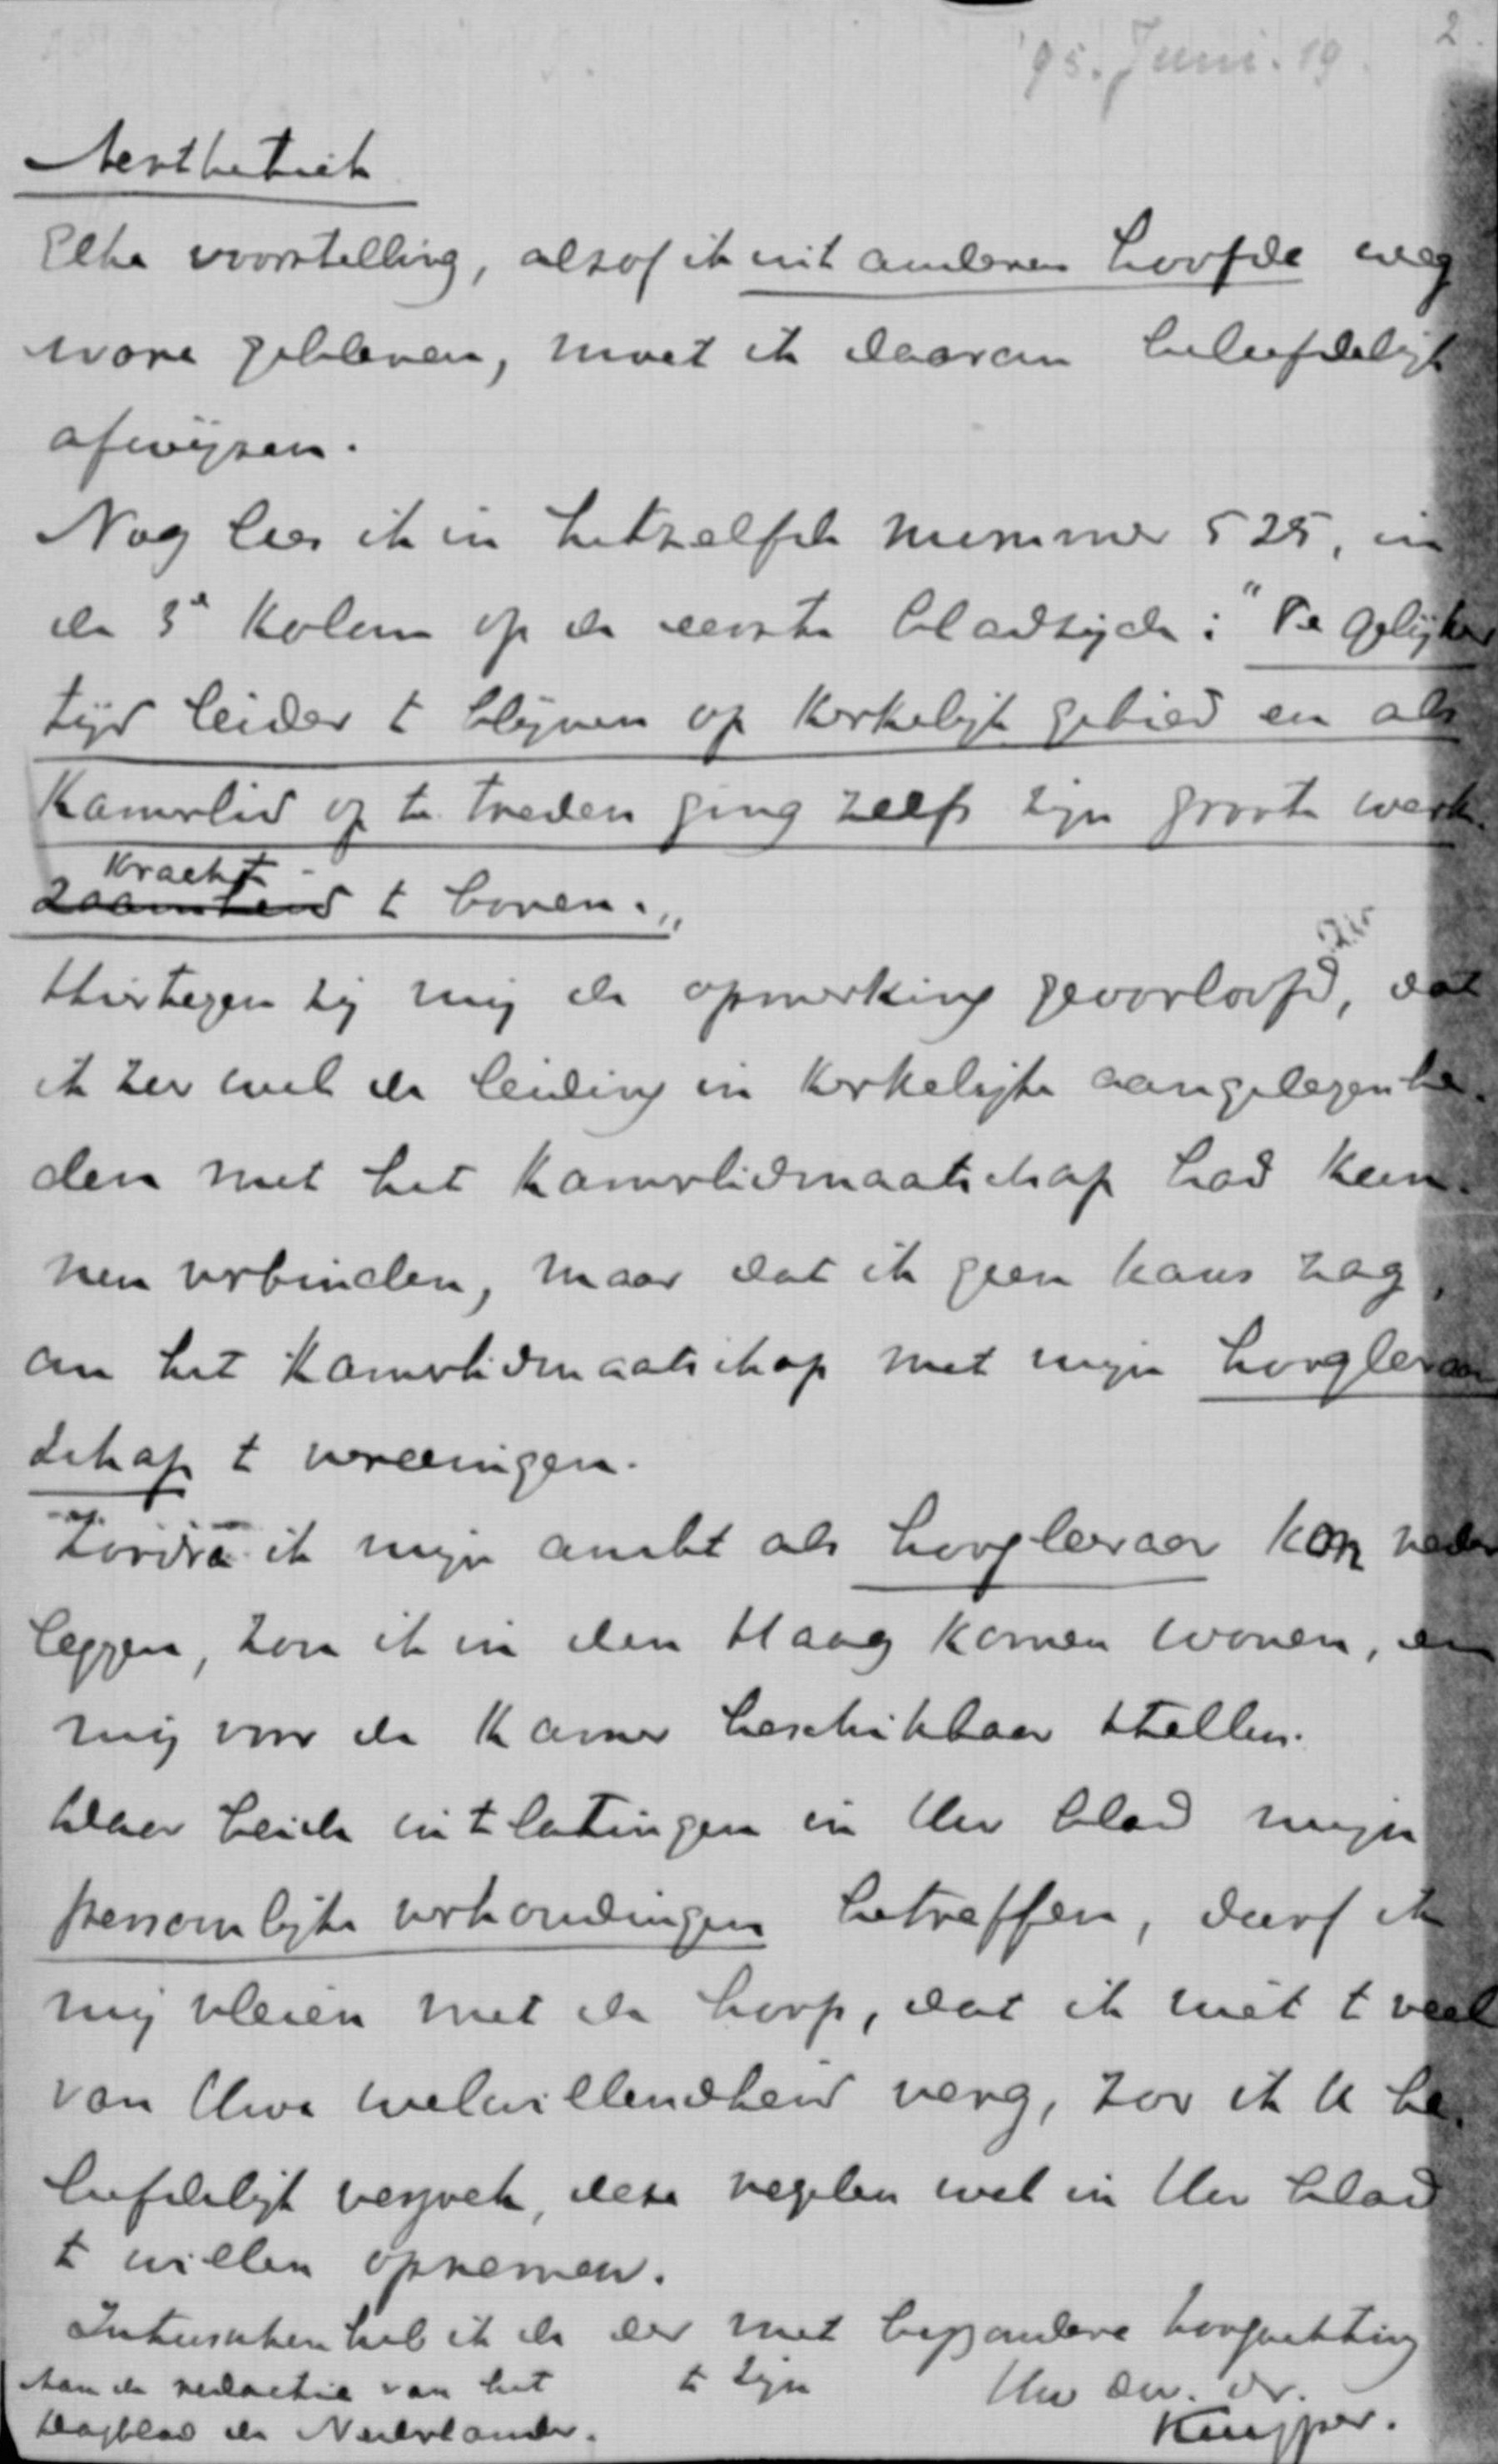 '95. Juni. 19. 2.
Aesthetiek
Elke voorstelling, alsof ik uit anderen hoofde weg
ware gebleven, moet ik daarom beleefdelijk
afwijzen.
Nog lees ik in hetzelfde nummer 525, in
de 3e kolom op de eerste bladzijde: "Te gelijker
tijd leider te blijven op kerkelijk gebied en als
Kamerlid op te treden ging zelfs zijn groote werk-
kracht
zaamheid te boven."
Hiertegen zij mij de opmerking geoorloofd, dat
ik zeer wel de leiding in kerkelijke aangelegenhe-
den met het Kamerlidmaatschap had kun-
nen verbinden, maar dat ik geen kans zag,
om het Kamerlidmaatschap met mijn hoogleraar
schap te vereenigen.
Zoodra ik mijn ambt als hoogleeraar kon neder
leggen, zou ik in den Haag komen wonen, en
mij voor de Kamer beschikbaar stellen.
Daar beide uitlatingen in Uw blad mijn
persoonlijke verhoudingen betreffen, durf ik
mij vleien met de hoop, dat ik niet te veel
van Uwe welwillendheid verg, zoo ik U be-
leefdelijk verzoek, deze regelen wel in Uw blad
te willen opnemen.
Intusschen heb ik de eer met bijzondere hoogachting
te zijn Uw dw. dr.
Kuyper.
Aan de redactie van het
Dagblad de Nederlander.